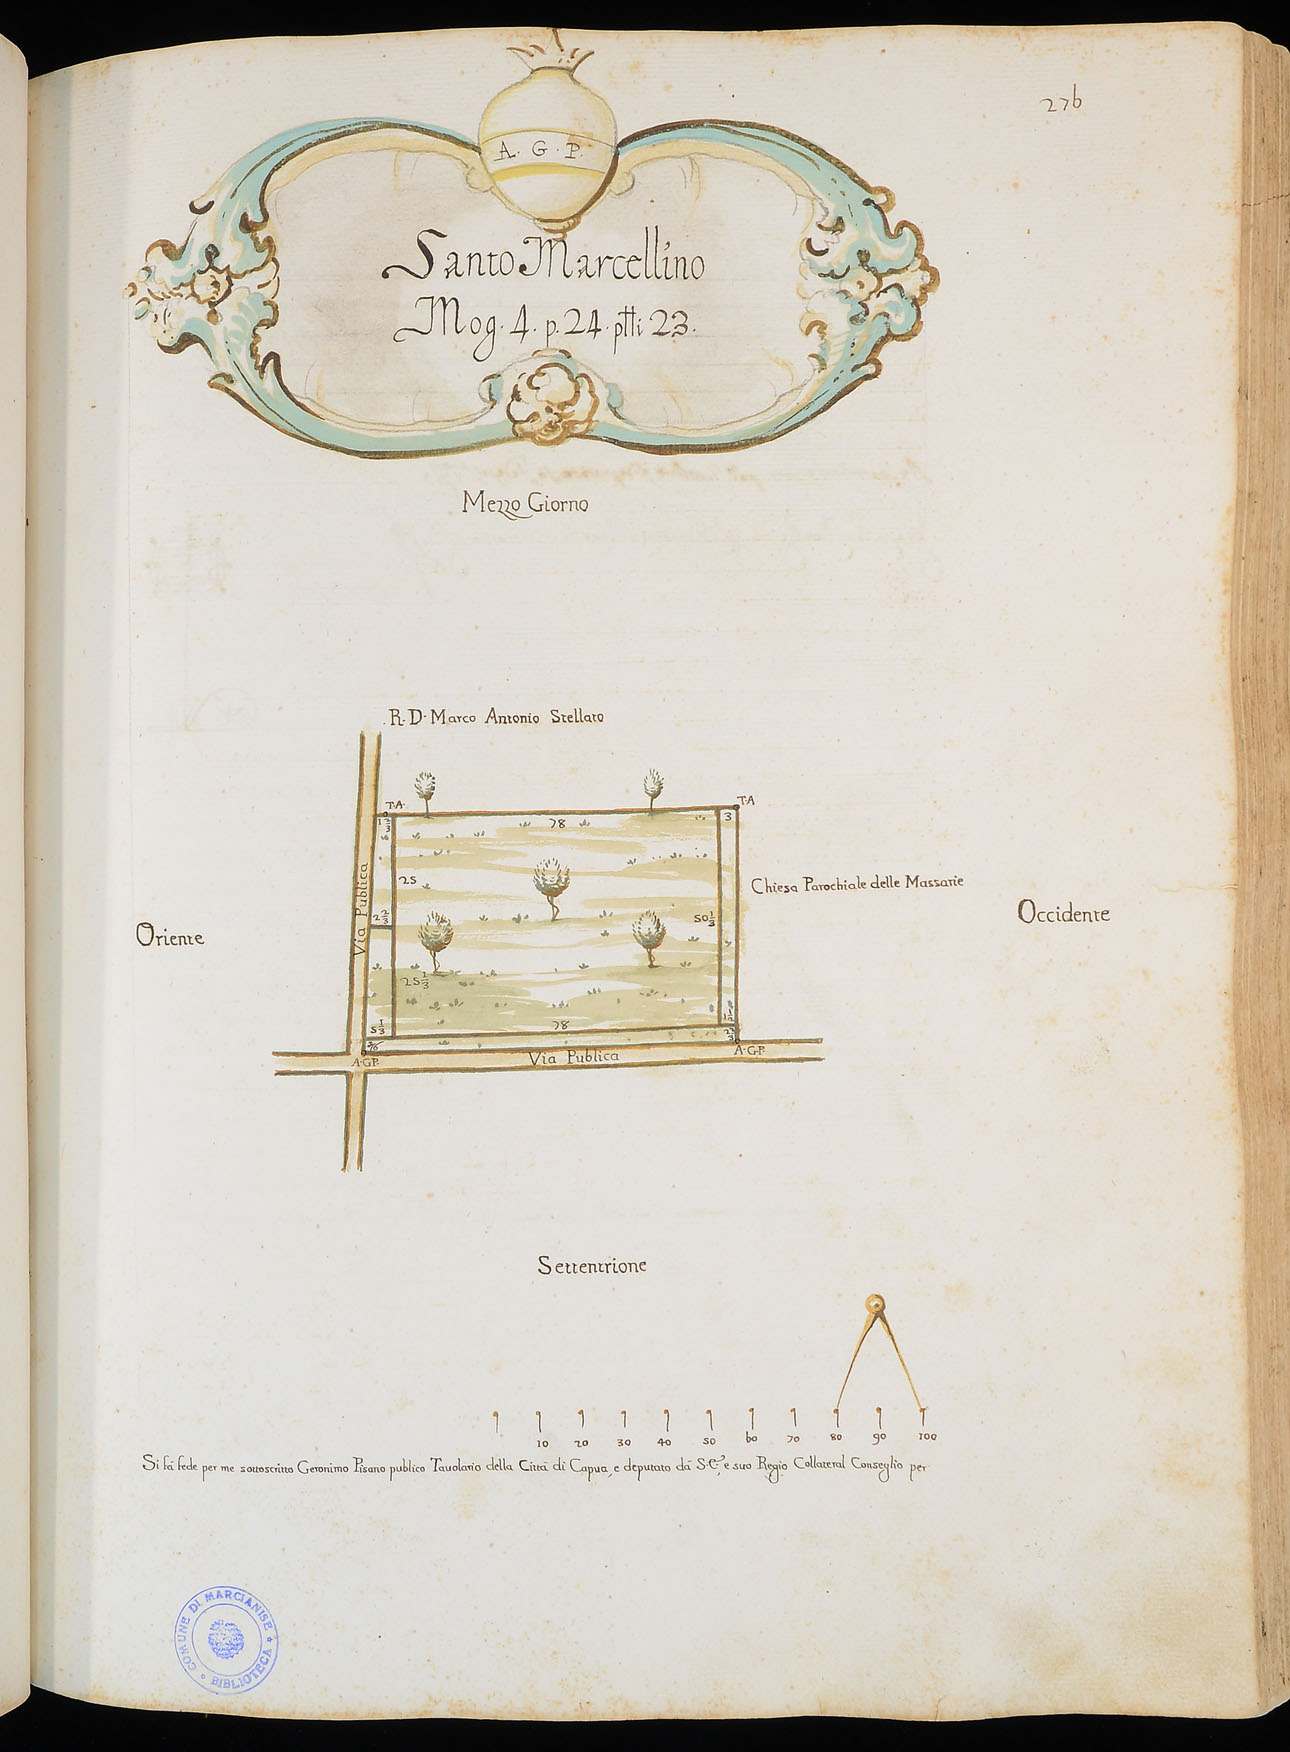 276
A. G. P.
Santo Marcellino
Mog. 4. p. 24. ptti 23.
Mezzo Giorno
R. D. Marco Antonio Stellato
T.A.
T.A
1 2/3
78
3
25
Via Publica
2 2/3
50 1/3
Chiesa Parochiale delle Massarie
Oriente
Occidente
25 1/3
5 1/3
78
2 2/3
A.G.P.
Via Publica
A.G.P.
Settentrione
10 20 30 40 50 60 70 80 90 100
Si fà fede per me sottoscritto Geronimo Pisano publico Tavolario della Città di Capua, e deputato dà S.E., e suo Regio Collateral Conseglio per
COMUNE DI MARCIANISE * BIBLIOTECA *